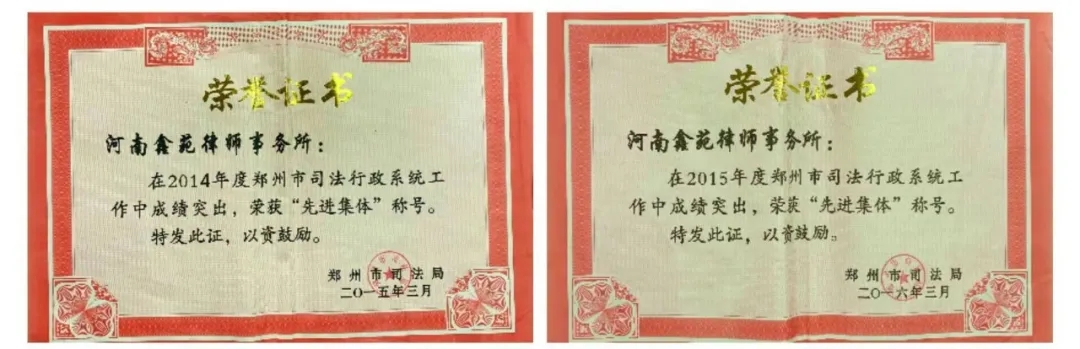 荣誉证书
河南鑫苑律师事务所：
在2014年度郑州市司法行政系统工
作中成绩突出，荣获“先进集体”称号。
特发此证，以资鼓励。
郑州市司法局
二〇一五年三月
荣誉证书
河南鑫苑律师事务所：
在2015年度郑州市司法行政系统工
作中成绩突出，荣获“先进集体”称号。
特发此证，以资鼓励。
郑州市司法局
二〇一六年三月